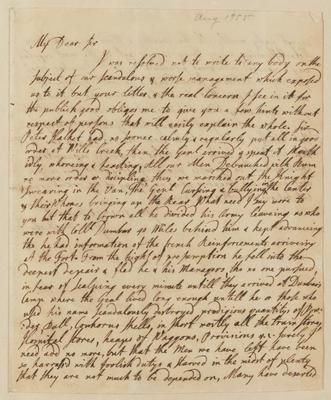 Aug 1755
My Dear Sr
I was resolved not to write to any body on the
subject of our scandalous & worse management which exposed
us to it but your letter & the real concern I see in it for
the publick good obliges me to give you a few hints without
respect of persons that will easily explain the whole. Sir
Peter Halket had no sooner calmly & regularly put all in good
order at Wills Creek, then the Genl arrived & spent a Month
idly whoreing & feasting, All our Men Debauched with Rum
no more order or discipline then we marched out the Knight
swearing in the Van, the Genl cursing & bullying the Center
& their whores bringing up the Rear What need I say more to
you but that to Crown all he divided his Army leaving us who
were with Coll Dunbar 40 Miles behind him & kept advancing
tho he had information of the french Reinforcements arriveing
at the fort. From the height of presumption he fell into the
deepest dispair & fled he & his Managers tho no one pursued,
in fear of scalping every minute untill they arrived at Dunbars
Camp where the Genl lived long enough untill he or those who
used his name scandalously destroyed prodigious quantitys of Pow-
der, Ball, Cowhorns shells, in short mostly all the train stores,
Hospital stores, heaps of Waggons, Provisions &c. pray
need add no more, but that the Men we have left have been
so harrassed with foolish dutys & starved in the midst of plenty
that they are not much to be depended on, Many have deserted